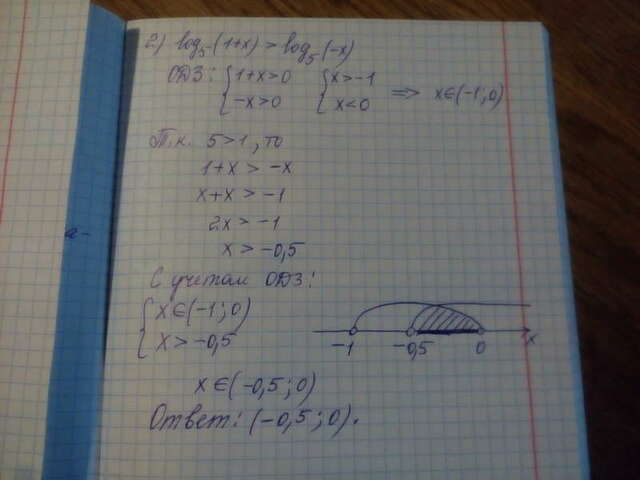 2) log₅(1+x) > log₅(-x)
ОДЗ: { 1+x>0 { x>-1 => x∈(-1;0)
-x>0 x<0
Т.к. 5>1, то
1+x > -x
x+x > -1
2x > -1
x > -0,5
а-
С учетом ОДЗ:
{ x∈(-1;0)
x > -0,5
-1 -0,5 0 x
x∈(-0,5;0)
Ответ: (-0,5;0).